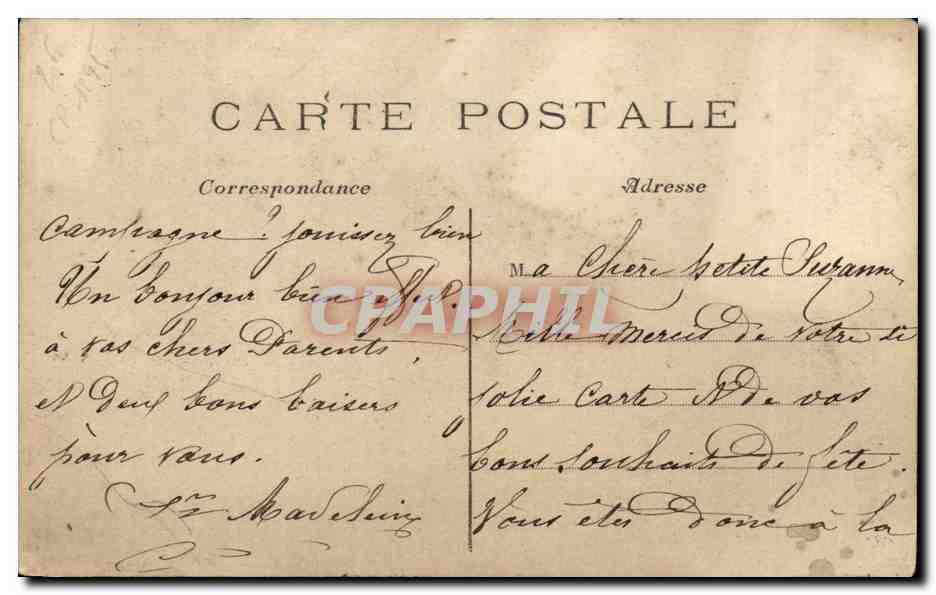 CARTE POSTALE
Correspondance
Adresse
Ma chère petite Suzanne
Mille mercis de votre si
jolie carte et de vos
bons souhaits de fête.
Vous êtes donc à la
campagne? jouissez bien
Un bonjour bien affect.
à vos chers Parents,
et deux bons baisers
pour vous.
Sr Madeleine
CPAPHIL